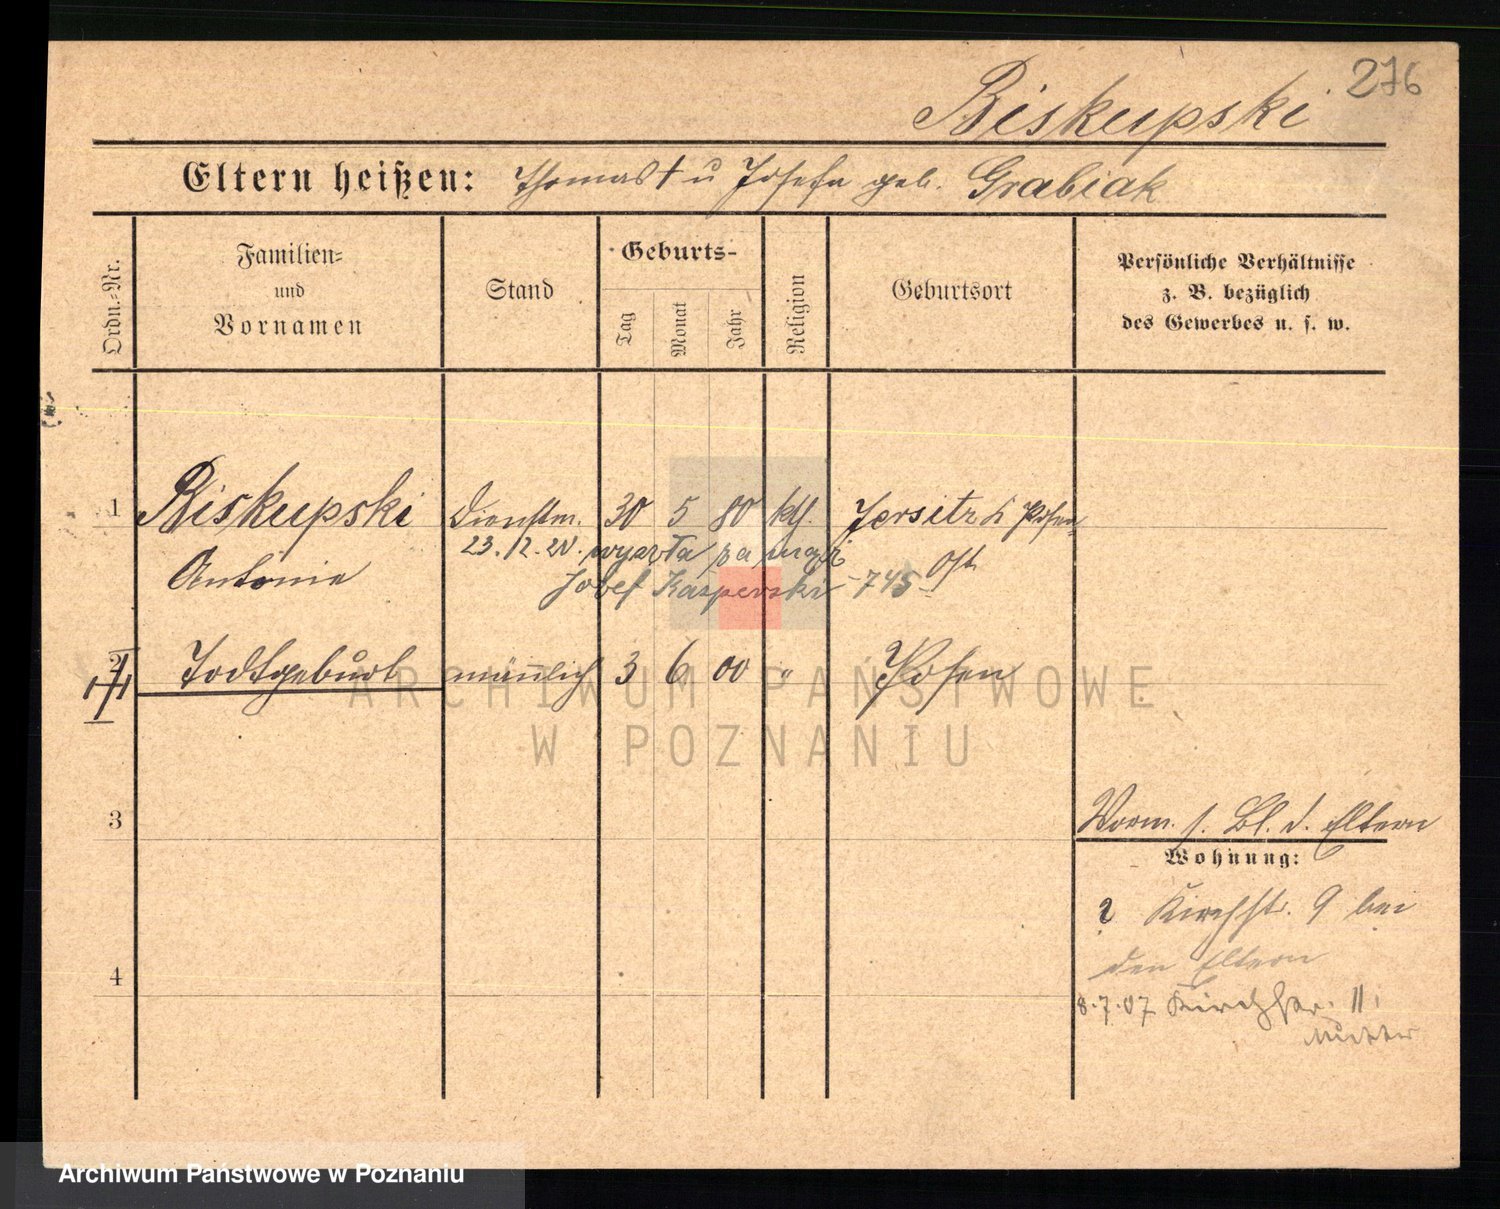 276
Biskupski
Eltern heißen: Thomas † u Josefa geb. Grabiak
Ordn.-Nr.
Familien- und Vornamen
Stand
Geburts-
Tag
Monat
Jahr
Religion
Geburtsort
Persönliche Verhältnisse
z. B. bezüglich
des Gewerbes u. s. w.
1 Biskupski Dienstm. 30 5 80 kth. Jersitz b Posen
23.12.20. wyszła za mąż
Antonie
Josef Kasperski - 745 Ost
2 Todtgeburt männlich 3 6 00 " Posen
ARCHIWUM PAŃSTWOWE
W POZNANIU
3
Vorm. s. Bl. d. Eltern
Wohnung:
Kirchstr. 9 bei
den Eltern
4
8.7.07 Kirchstr. 11.
Mutter
Archiwum Państwowe w Poznaniu